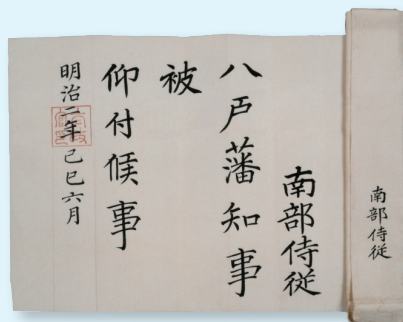 南部侍従
南部侍従
八戸藩知事
被
仰付候事
明治二年己巳六月